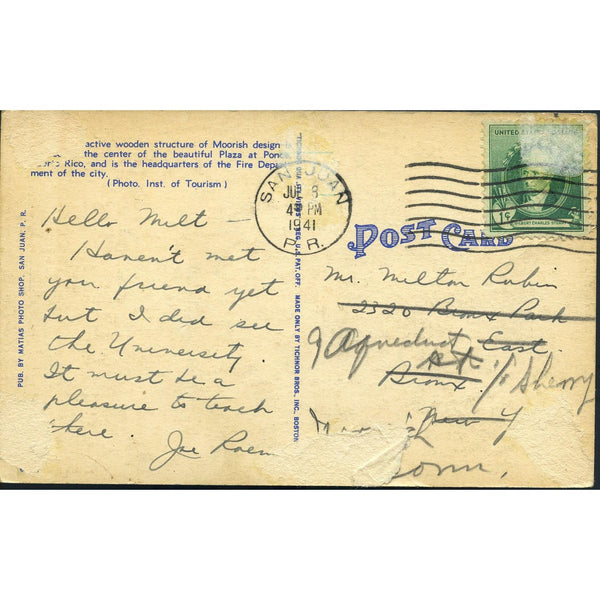 active wooden structure of Moorish design
the center of the beautiful Plaza at Ponce
Rico, and is the headquarters of the Fire Depart-
ment of the city.
(Photo. Inst. of Tourism)
Hello Milt —
Haven't met
you friend yet
but I did see
the University
It must be a
pleasure to teach
there
Joe
PUB. BY MATIAS PHOTO SHOP. SAN JUAN, P. R.
REG. U.S. PAT. OFF. MADE ONLY BY TICHNOR BROS., INC., BOSTON
SAN JUAN
8
4 PM
1941
P. R.
UNITED STATES POSTAGE
1¢
GILBERT CHARLES STUART
POST CARD
Mr. Milton Rubin
2320 Bronx Park
East
9 Aqueduct St. % Sherry
Bronx
New Y
Conn.